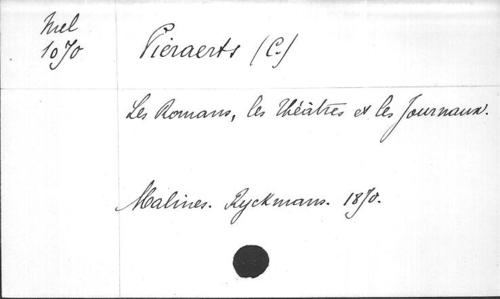 Mel
1070
Pieraerts (C.)
Les Romans, les théâtres et les Journaux.
Malines. Ryckmans. 1870.